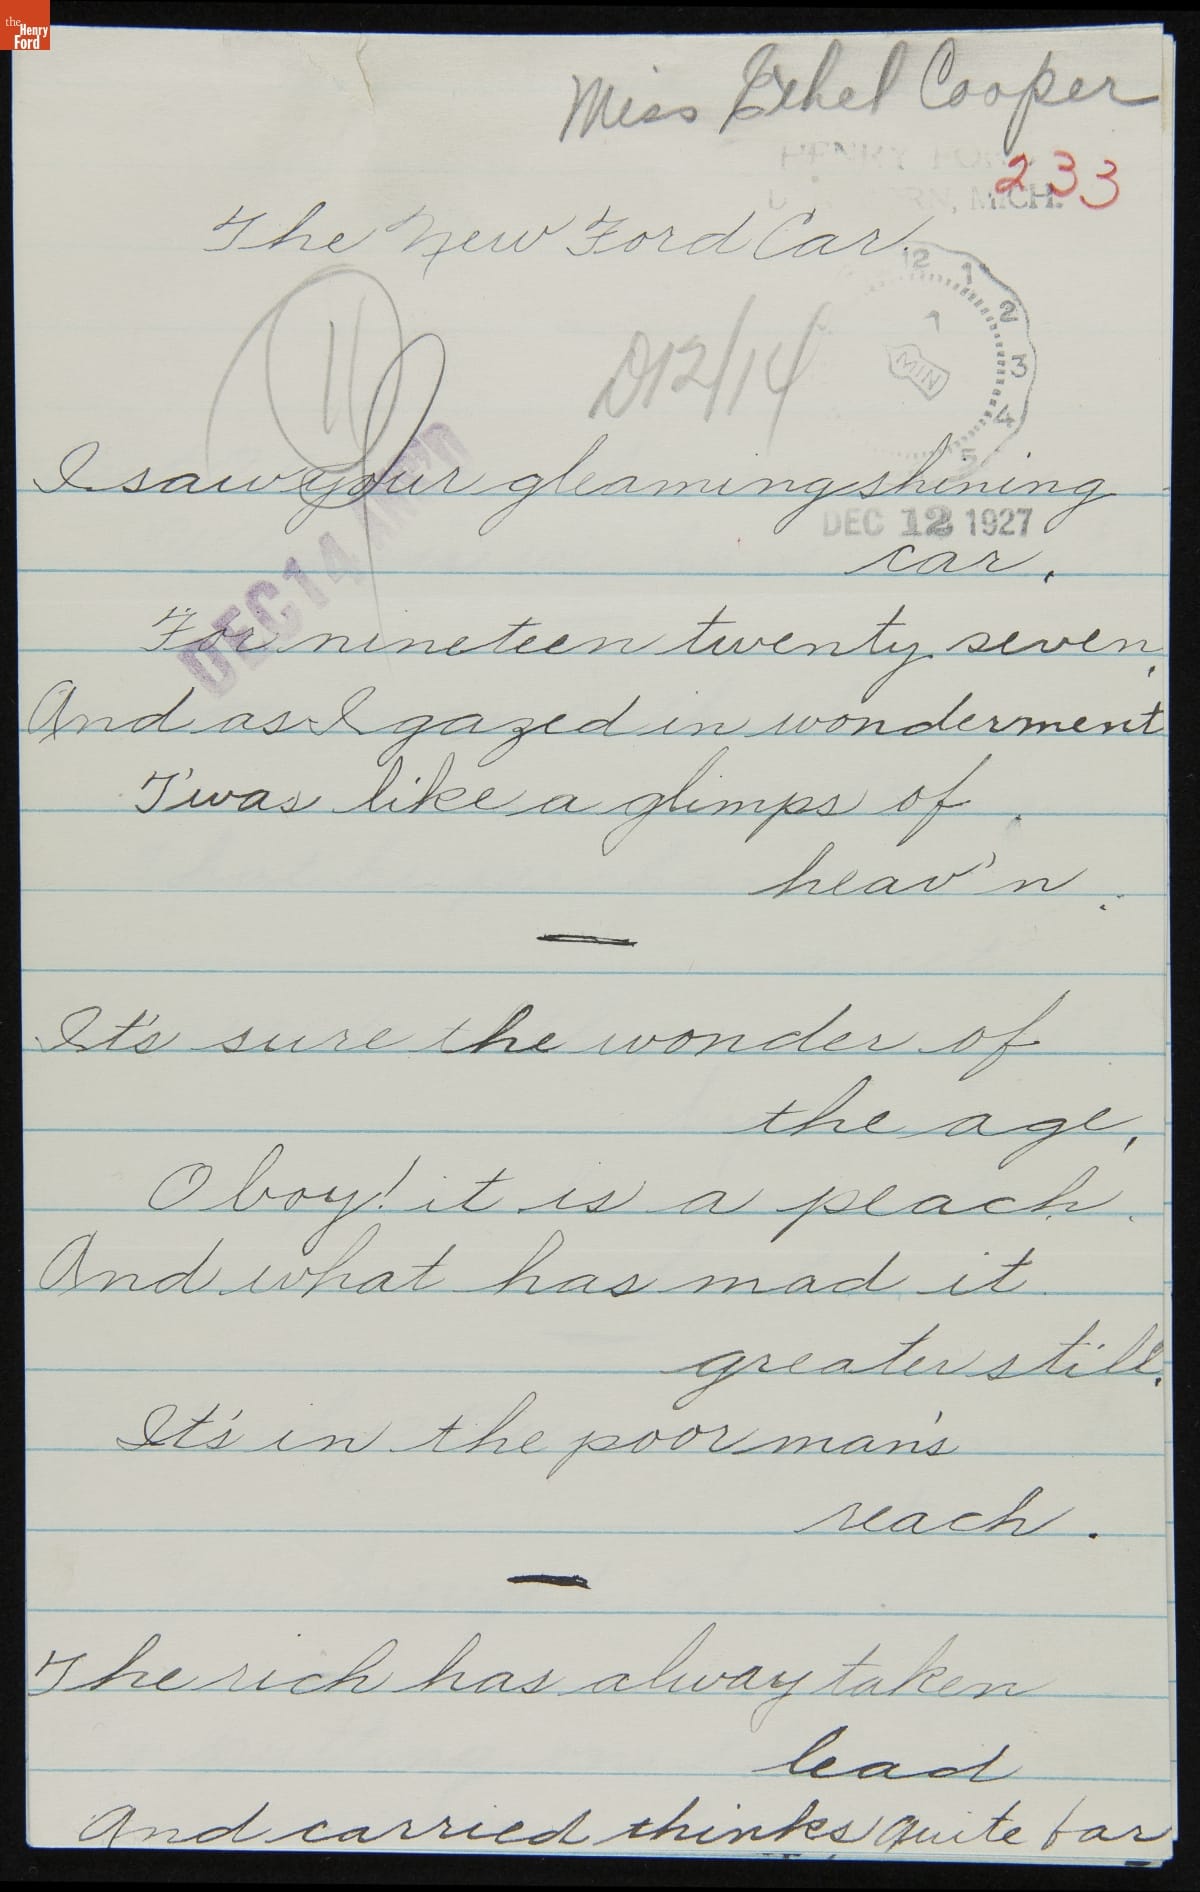 the
Henry
Ford
Miss Ethel Cooper
HENRY FORD
RN, MICH.
233
The New Ford Car.
11
D12/14
12 1 2 3 4 5
1
MIN
I saw your gleaming shining
DEC 12 1927
car.
DEC 14 ANS'D
For nineteen twenty seven,
And as I gazed in wonderment
T'was like a glimps of
heav'n.
It's sure the wonder of
the age,
O boy! it is a peach.
And what has mad it
greater still,
It's in the poor man's
reach.
The rich has alway taken
lead
And carried thinks quite far